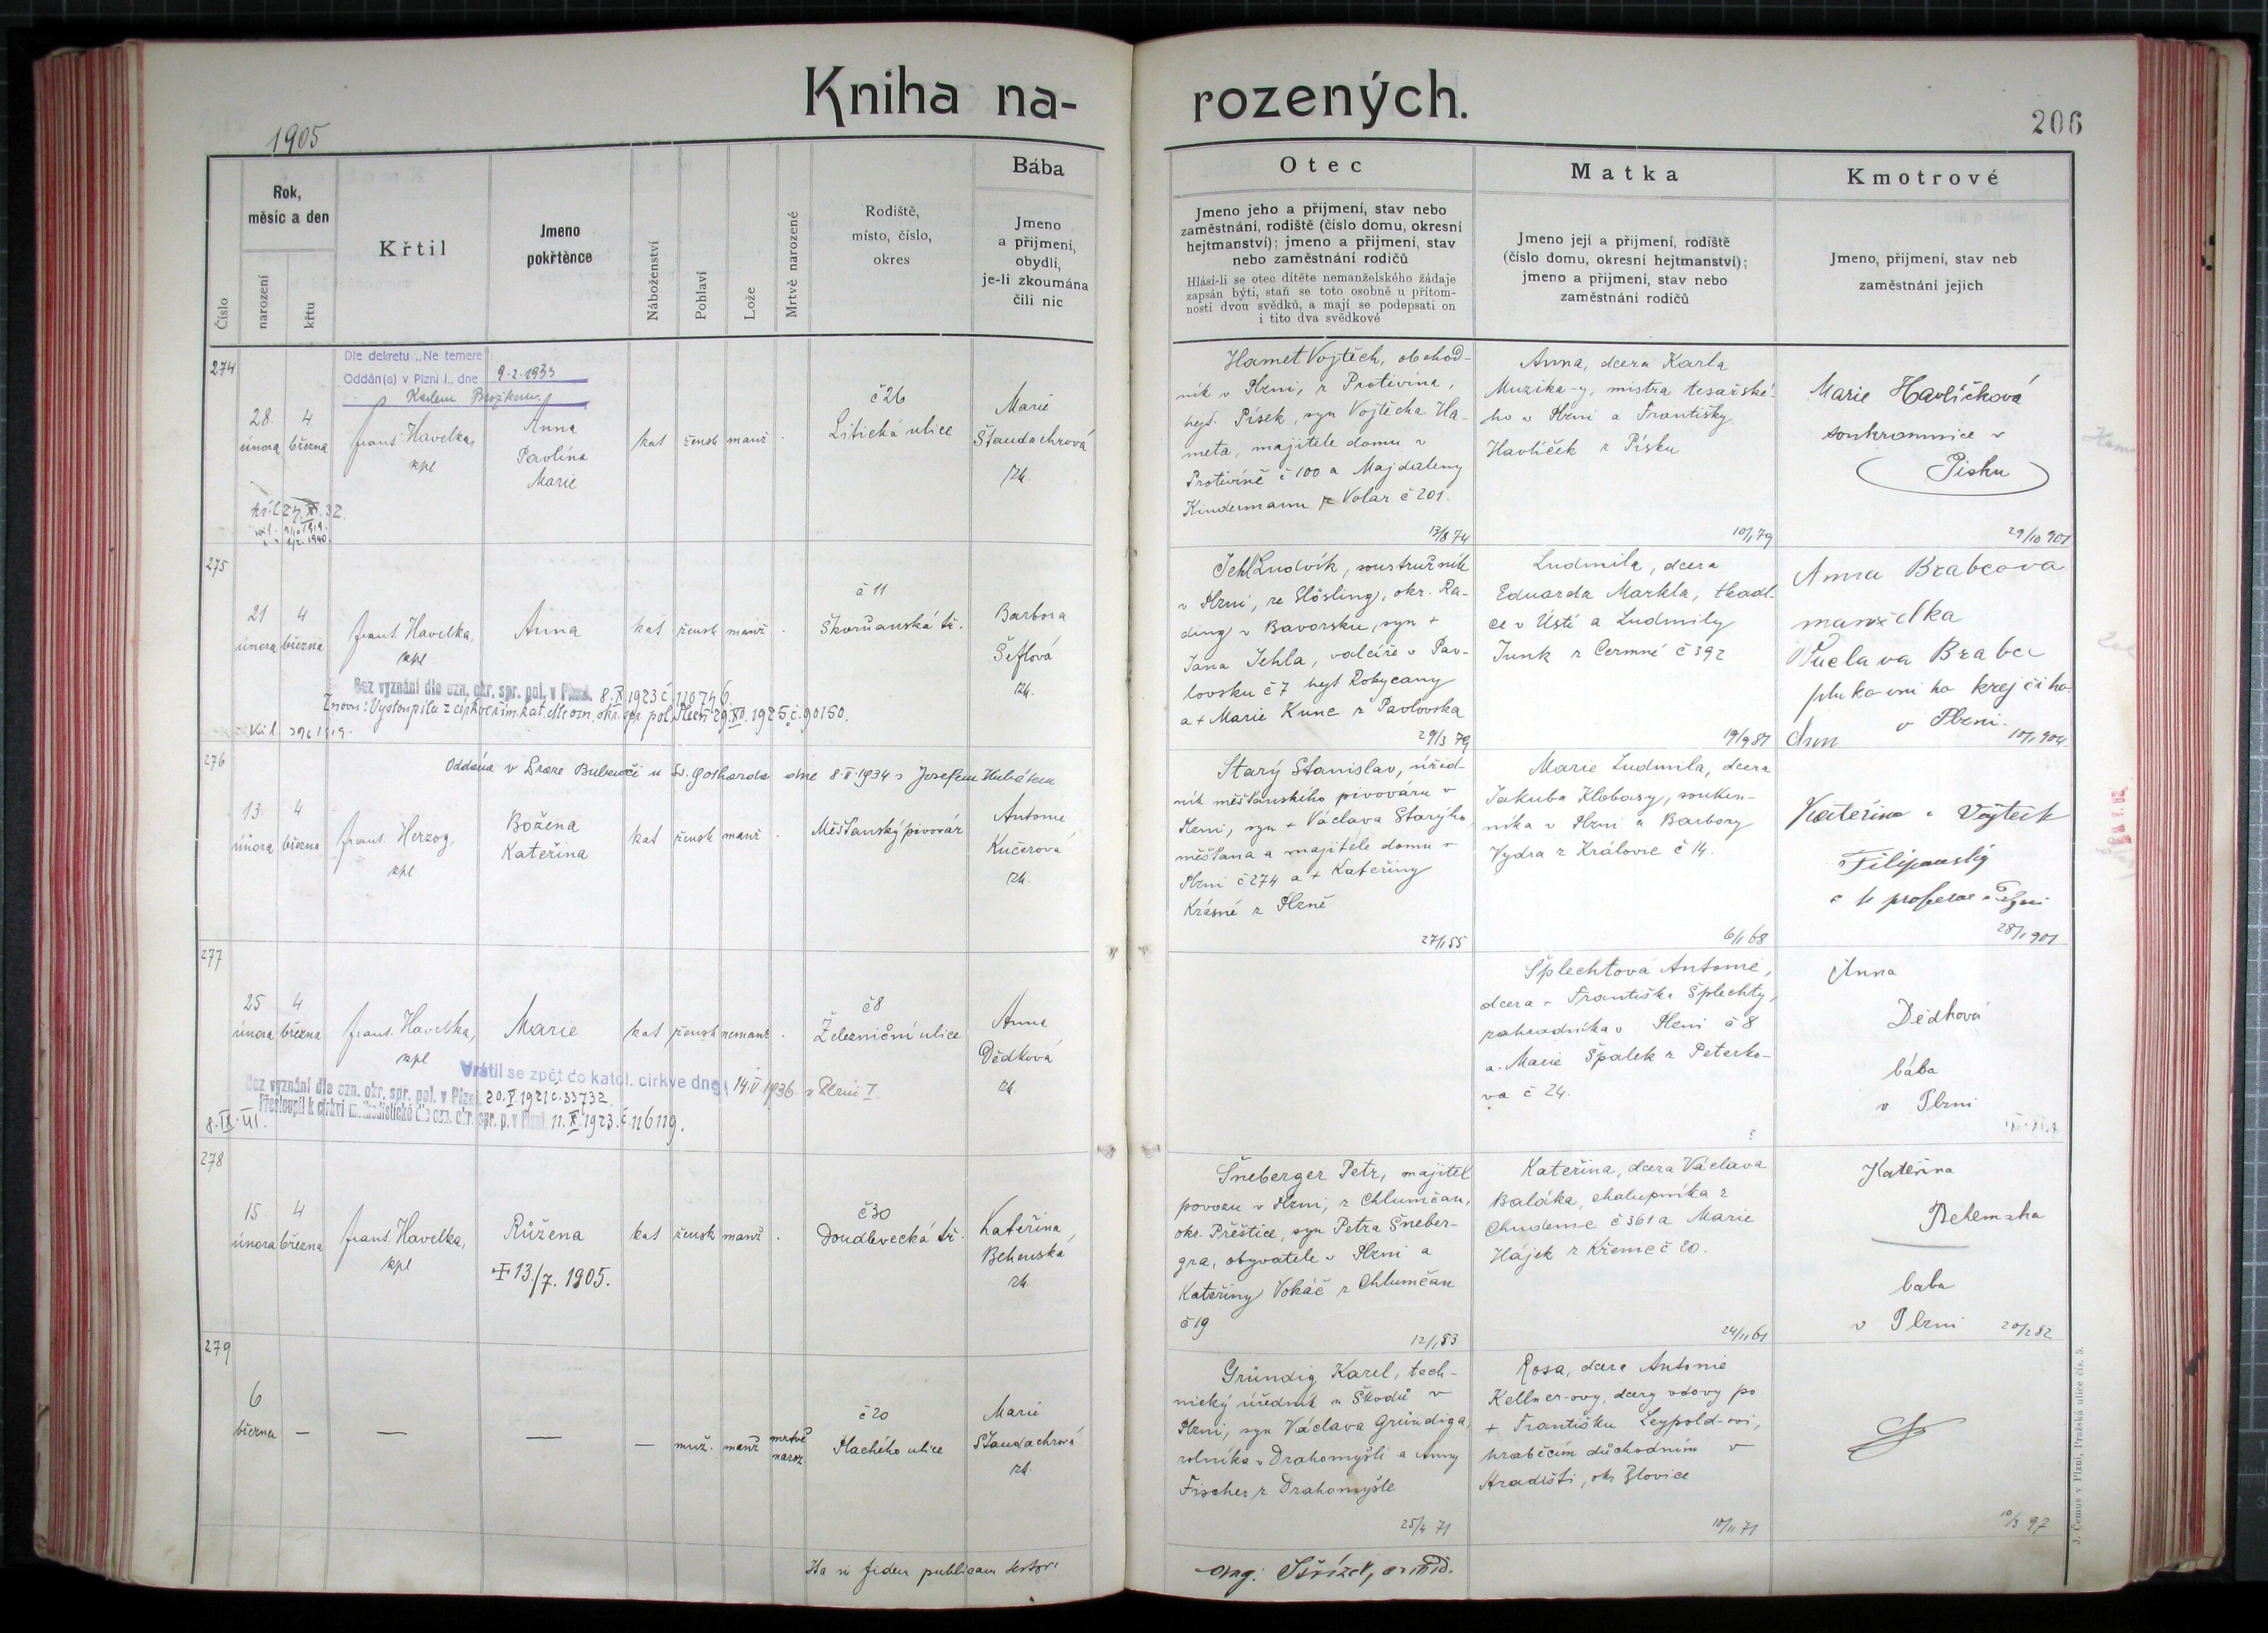 Kniha na-
rozených.
206
1905
Číslo
Rok,
měsíc a den
narození
křtu
Křtil
Jmeno
pokřtěnce
Náboženství
Pohlaví
Lože
Mrtvě narozené
Rodiště,
místo, číslo,
okres
Bába
Jmeno
a příjmení,
obydlí,
je-li zkoumána
čili nic
Otec
Jmeno jeho a příjmení, stav nebo
zaměstnání, rodiště (číslo domu, okresní
hejtmanství); jmeno a příjmení, stav
nebo zaměstnání rodičů
Hlásí-li se otec dítěte nemanželského žádaje
zapsán býti, staň se toto osobně u přítom-
nosti dvou svědků, a mají se podepsati on
i tito dva svědkové
Matka
Jmeno její a příjmení, rodiště
(číslo domu, okresní hejtmanství);
jmeno a příjmení, stav nebo
zaměstnání rodičů
Kmotrové
Jmeno, příjmení, stav neb
zaměstnání jejich
274
Dle dekretu „Ne temere
Oddán(a) v Plzni I., dne 9.2.1933
s Karlem Brožkem.
28.
února
4
března
frant. Havelka,
kpl
Anna
Pavlína
Marie
kat
žensk
manž
č 26
Litická ulice
Marie
Štaudachrová
zk.
Hamet Vojtěch, obchod-
ník v Plzni, z Protivína,
hejt. Písek, syn Vojtěcha Ha-
meta, majitele domu v
Protivíně č 100 a Majdaleny
Kindermann z Volar č 201.
13/8 74
Anna, dcera Karla
Muzika-y, mistra tesařské-
ho v Plzni a Františky
Havlíček z Písku
10/1 79
Marie Havlíčková
soukromnice v
Písku
29/10 901
275
21
února
4
března
frant. Havelka,
kpl
Anna
kat
žensk
manž
č 11
Škvrňanská tř.
Barbora
Šeflová
zk.
Bez vyznání dle ozn. okr. spr. pol. v Plzni. 8.X.1923 č 110746.
Znovu: Vystoupila z církve řím. kat. dle ozn. okr. spr. pol. Plzeň 29.XII.1925 č. 90150.
Jehl Ludvík, soustružník
v Plzni, ze Slösling, okr. Ra-
ding v Bavorsku, syn +
Jana Jehla, valcíře v Pav-
lovsku č 7 hejt Rokycany
a + Marie Kunc z Pavlovska
29/3 79
Ludmila, dcera
Eduarda Markla, tkadl-
ce v Ústí a Ludmily
Junk z Cermné č 392
19/9 81
Anna Brabcova
manželka
Václava Brabce
plukovního krejčího
v Plzni.
10/1 904
276
Oddána v Praze Bubenči u Sv. Gotharda dne 8.II.1934 s Josefem Kubátem
13.
února
4
března
frant. Herzog,
kpl
Božena
Kateřina
kat
žensk
manž
Měšťanský pivovár
Antonie
Kučerová
zk.
Starý Stanislav, úřed-
ník měšťanského pivováru v
Plzni, syn + Václava Starýho,
měšťana a majitele domu v
Plzni č 274 a + Kateřiny
Krásné z Plzně
27/1 55
Marie Ludmila, dcera
Jakuba Klobasy, souken-
níka v Plzni a Barbory
Vydra z Královic č 14.
6/1 68
Kateřina a Vojtěch
Filipovský
28/1 901
277
25
února
4
března
frant. Havelka,
kpl
Marie
kat
žensk
nemanž
č 8
Železniční ulice
Anna
Dědková
zk.
Vrátil se zpět do katol. církve dne 14.V.1936 v Plzni I.
Bez vyznání dle ozn. okr. spr. pol. v Plzni 20.V.1921 č. 33732.
Přestoupil k církvi methodistické dle ozn. okr. spr. p. v Plzni 11.X.1923. č. 116119.
8.IX.41.
Šplechtová Antonie,
dcera + Františka Šplechty,
zahradníka v Plzni č 8
a. Marie Špalek z Peterko-
va č 24.
?
Anna
Dědková
bába
v Plzni
278
15.
února
4
března
frant. Havelka,
kpl
Růžena
+ 13./7. 1905.
kat
žensk
manž
č 30
Doudlevecká tř.
Kateřina
Behenská
zk.
Šneberger Petr, majitel
povozu v Plzni, z Chlumčan,
okr. Přeštice, syn Petra Šneber-
gra, obyvatele v Plzni a
Kateřiny Vokáč z Chlumčan
č 19
12/1 83
Kateřina, dcera Václava
Baláka, chalupníka z
Chudenic č 361 a Marie
Hájek z Křenic č 20.
24/11 61
Kateřina
Behemska
baba
v Plzni
20/2 82
279
6
března
—
—
—
—
muž.
manž
mrtvě
naroz.
č 20
Plachého ulice
Marie
Štaudachrová
zk.
Gründig Karel, tech-
nický úředník u Škodů v
Plzni, syn Václava Gründiga,
rolníka v Drahomyšli a Anny
Fischer z Drahomyšle
25/4 71
Rosa, dcera Antonie
Kellner-ovy, dcery vdovy po
+ Františku Leypold-ovi,
hraběcím důchodním v
Hradišti, okr Blovice
10/11 71
10/3 97
Ita in fidem publicam testor:
J. Čemus v Plzni, Pražská ulice čís. 5.